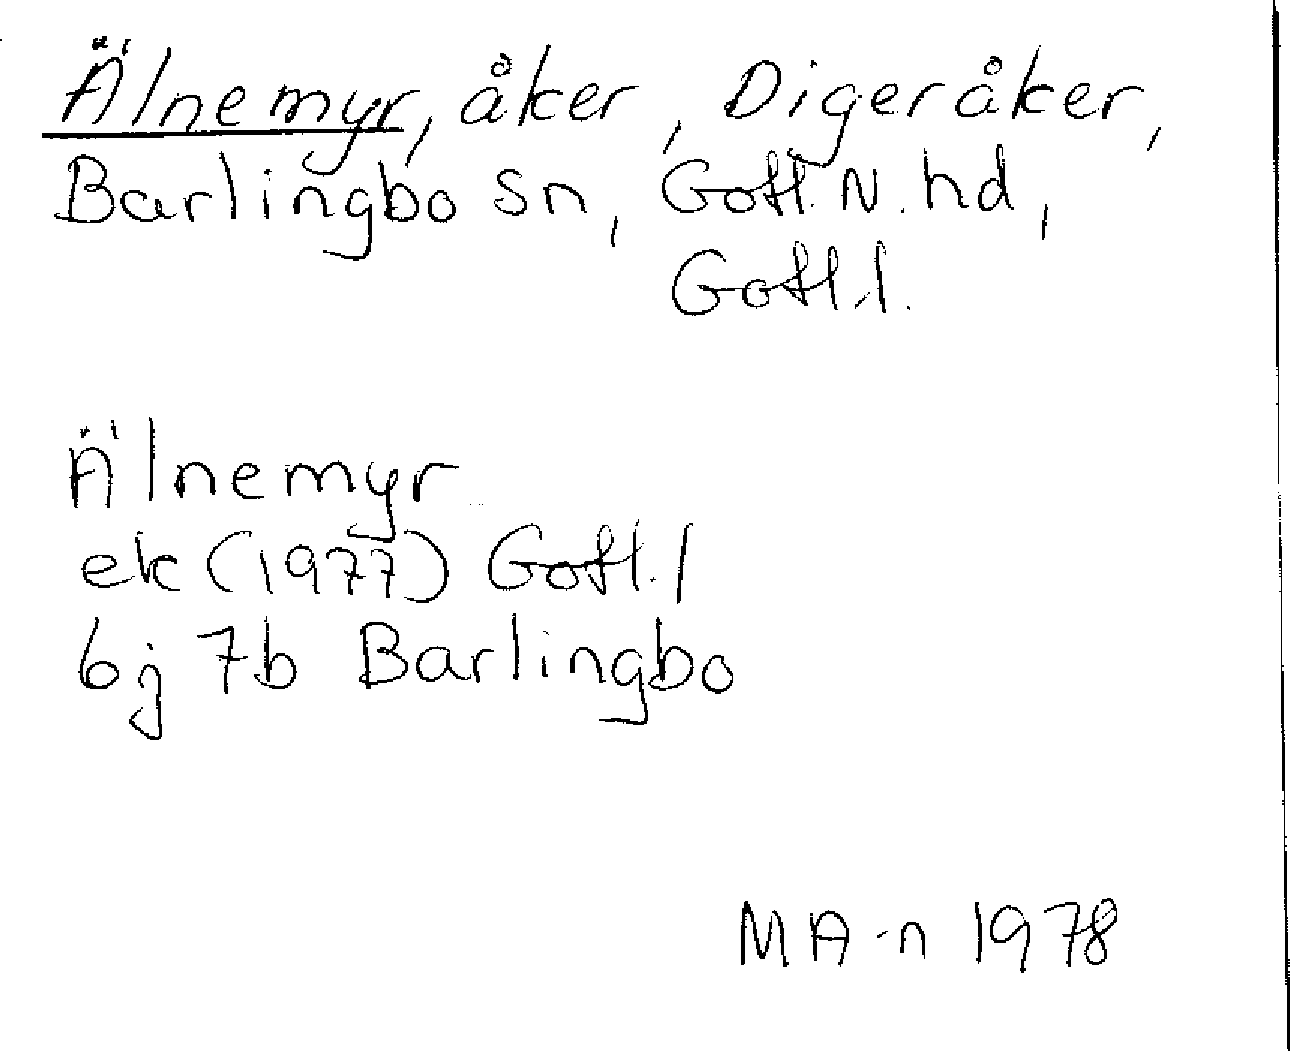 Älnemyr, åker, Digeråker,
Barlingbo sn, Gotl. N. hd,
Gotl.l.
Älnemyr
ek (1977) Gotl. l
6j 7b Barlingbo
MA-n 1978